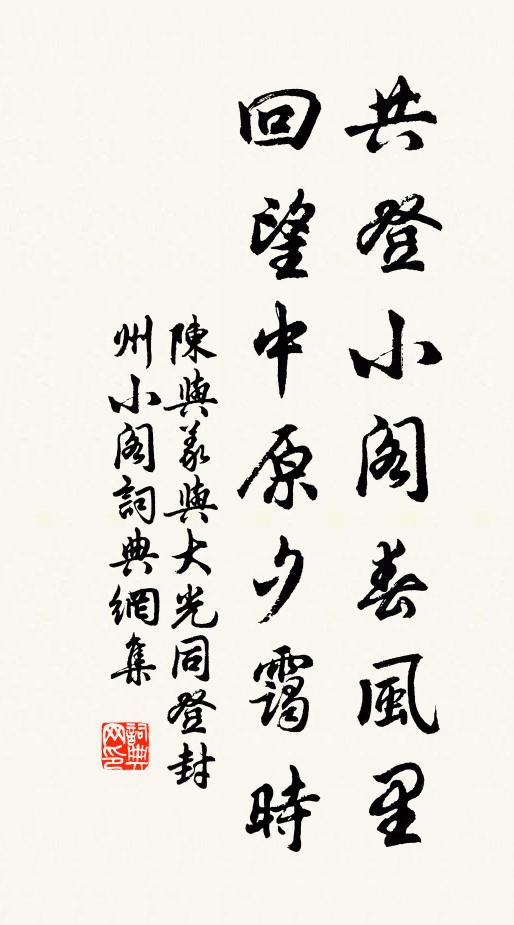 共登小阁春風里
回望中原夕靄時
陳與義與大光同登封
州小阁詞典網集
詞典
网印